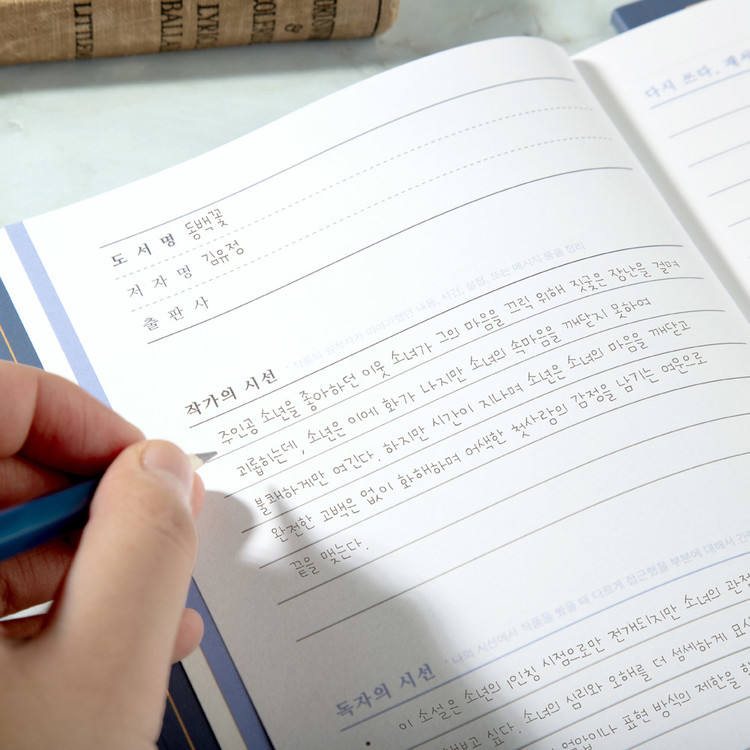 LITTLE
BALLA
LYRIC
COLERI
&
다시 쓰다,
도서명 동백꽃
저자명 김유정
출판사
작가의 시선
주인공 소년을 좋아하던 이웃 소녀가 그의 마음을 끄릭 위해 짓궂은 장난을 걸며
괴롭히는데, 소년은 이에 화가 나지만 소녀의 속마음을 깨닫지 못하여
불쾌하게만 여긴다. 하지만 시간이 지나며 소년은 소녀의 마음을 깨닫고
완전한 고백은 없이 화해하며 어색한 첫사랑의 감정을 남기는 여운으로
끝을 맺는다.
독자의 시선 * 나의 시선에서 작품을 썼을 때 다르게 접근했을 부분에 대해서
이 소설은 소년의 1인칭 시점으로만 전개되지만 소녀의 관점
싶다. 소녀의 심리와 오해를 더 섬세하게
표현 방식의 제한을